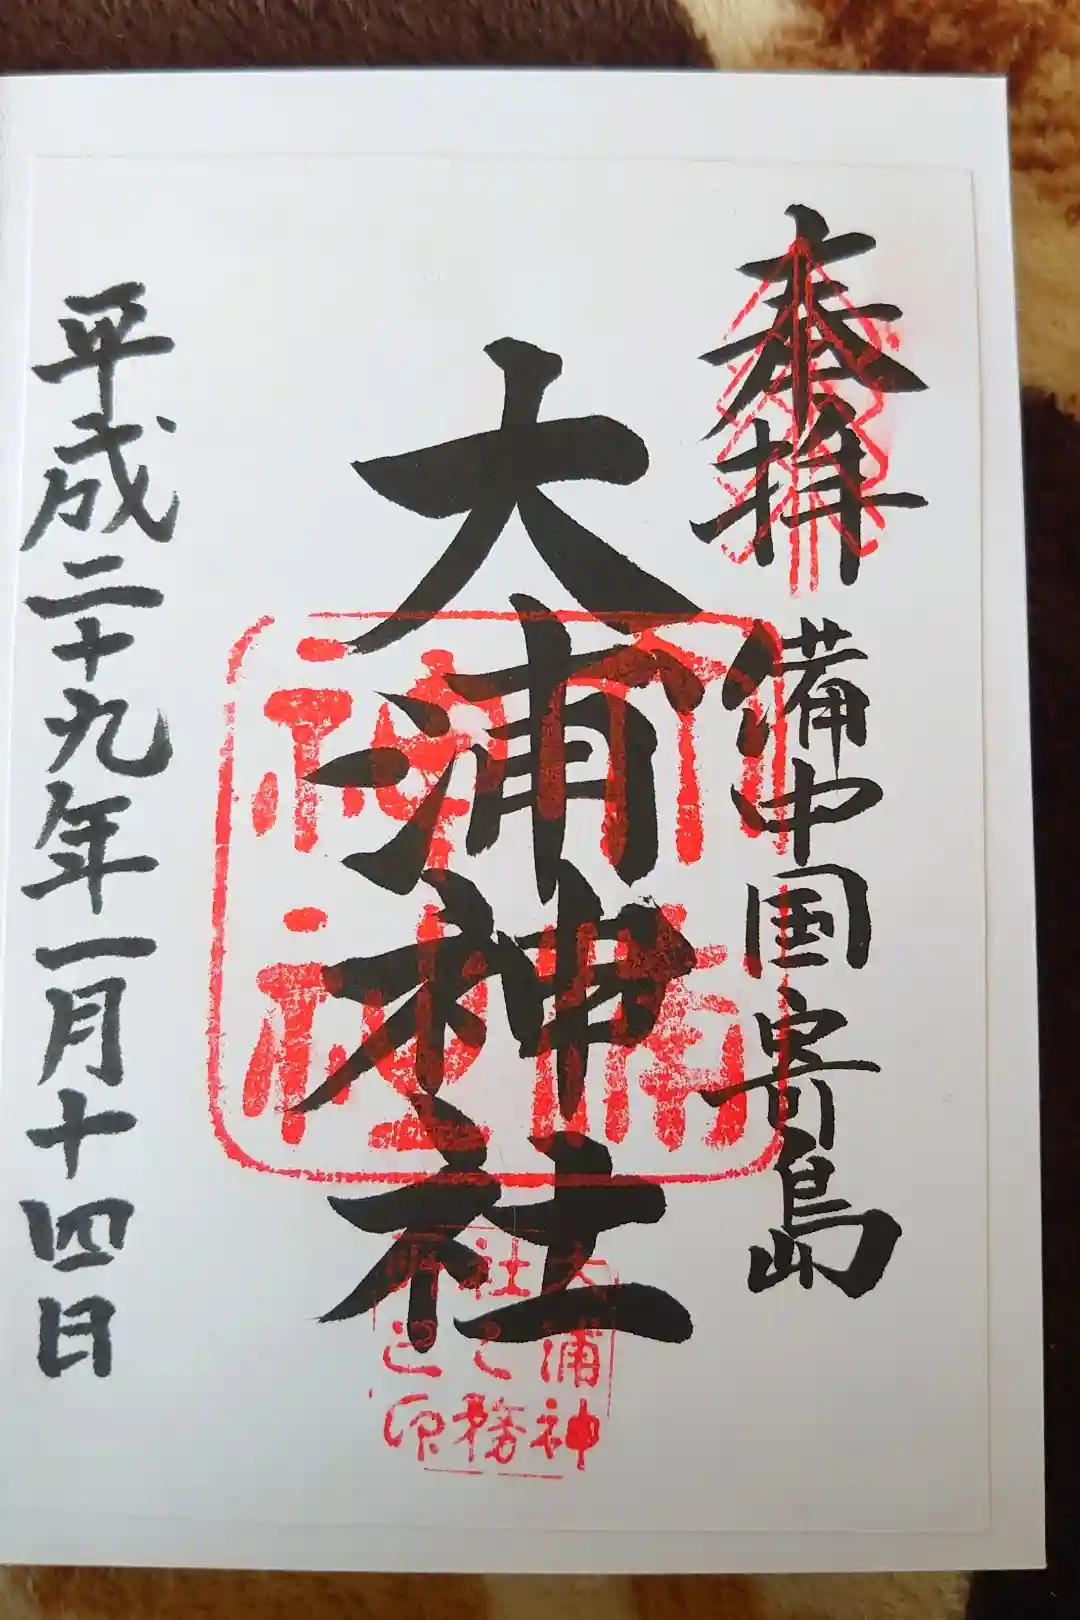 奉拝
備中国寄島
大浦神社
大浦神社
大浦神
社之務
所
平成二十九年一月十四日